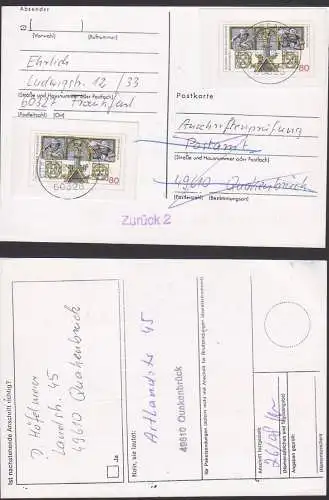 Absender
(Vorwahl) (Rufnummer)
Ehrlich
Ludwigstr. 12 /33
(Straße und Hausnummer oder Postfach)
60327 Frankfurt
(Postleitzahl) (Ort)
80
60328
80
Postkarte
Anschriftenprüfung
Postamt
(Straße und Hausnummer oder Postfach)
49610 Quakenbrück
(Postleitzahl) (Bestimmungsort)
Zurück 2
Ist nachstehende Anschrift richtig?
Landstr. 45
49610 Quakenbrück
ja
Nein, sie lautet:
Artlandstr. 45
49610 Quakenbrück